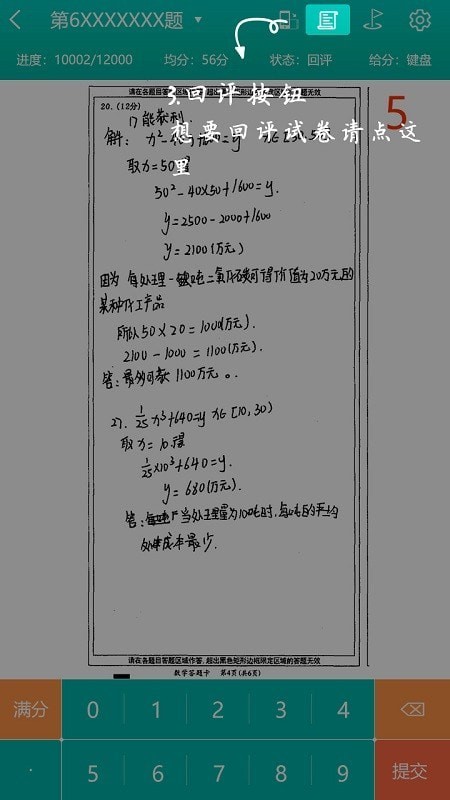 第6XXXXXXX题
进度：10002/12000 均分：56分 状态：回评 给分：键盘
请在各题目答题区域
无效
3.回评按钮
想要回评试卷请点这
里
5
20. (12分)
1) 能获利.
解：
取x=50
50²-40×50+1600=y.
y=2500-2000+1600
y=2100(万元)
因为 每处理一吨二氧化碳可得价值为20万元的
某种化工产品
所以 50×20=1000(万元).
2100-1000=1100(万元).
答：最多可获 1100万元。
27. 1/25 x³+640=y x∈[10,30)
取x=10.得
1/25×10³+640=y.
y=680(万元).
答：当处理量为10吨时,每吨的平均
处理成本最少.
请在各题目答题区域作答，超出黑色矩形边框限定区域的答题无效
数学答题卡 第4页(共6页)
满分 0 1 2 3 4
· 5 6 7 8 9 提交